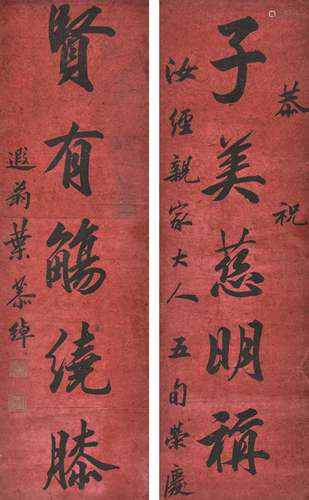 恭祝
子美慈明稱
汝經親家大人五旬榮慶
賢有觴繞膝
遐翁葉恭綽